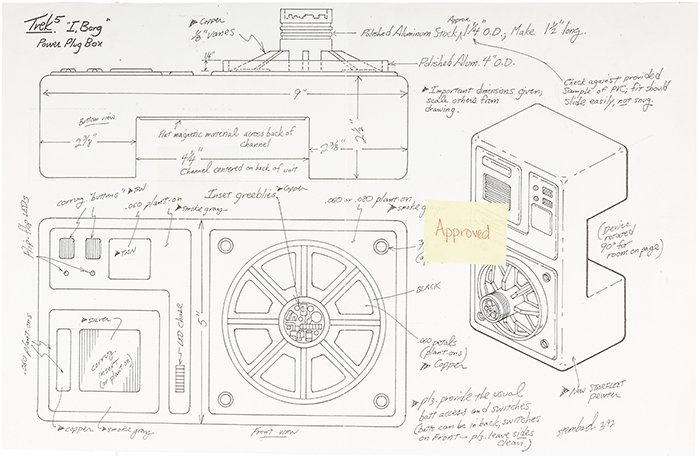 Trek⁵ "I, Borg"
Power Plug Box
Copper
1/8" vanes
1/4"
Approx.
Polished Aluminum Stock, 1¼" O.D., Make 1½" long.
Polished Alum. 4" O.D.
Important dimensions given;
scale others from
drawing.
Check against provided
Sample of PVC, fit should
slide easily, not snug.
9"
Bottom view
Flat magnetic material across back of
channel
2⅜"
4¼"
Channel centered on back of unit
2⅜"
2½"
corrug. "buttons"
TAN
.060 plant-on
smoke gray
Inset greeblies
Copper
.060 or .080 plant-on
smoke
Approved
TAN
BLACK
(Device
rotated
90° for
room on page)
.060 plant-ons
Silver
corrug.
insert
(or plant on)
LED chase
5"
.060 petals
(plant-ons)
Copper
copper
smoke gray
Front view
pls. provide the usual
batt access and switches
(batts can be in back, switches
on Front — pls. leave sides
clean.)
New STARFLEET
pewter
sternbach 392